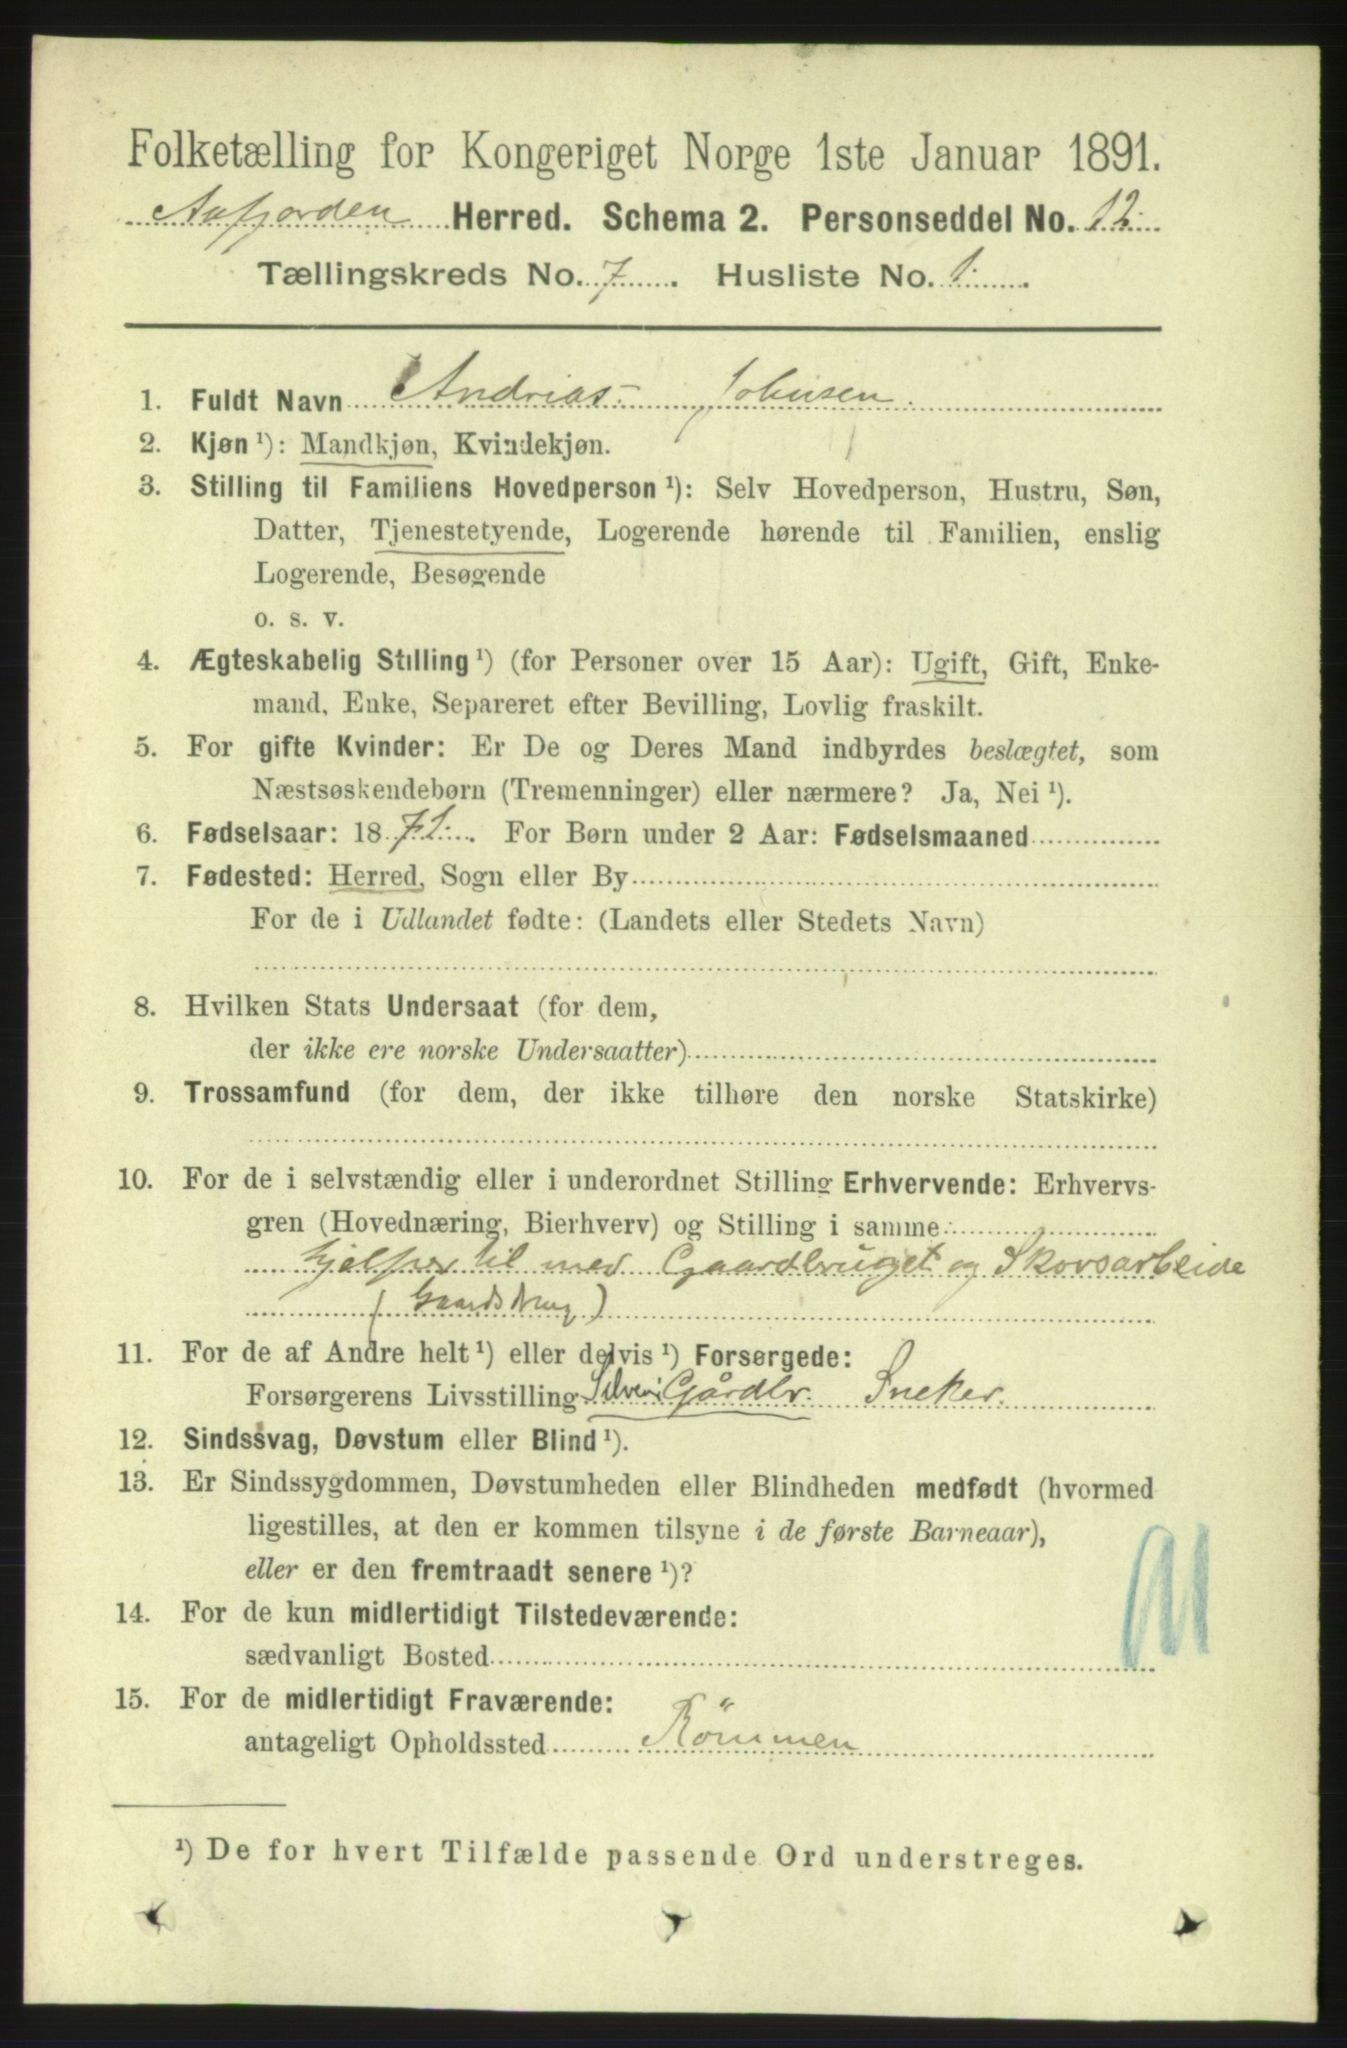 Folketælling for Kongeriget Norge 1ste Januar 1891.
Aafjorden Herred. Schema 2. Personseddel No. 12.
Tællingskreds No. 7. Husliste No. 1.
1. Fuldt Navn Andrias Johnsen.
2. Kjøn ¹): Mandkjøn, Kvindekjøn.
3. Stilling til Familiens Hovedperson ¹): Selv Hovedperson, Hustru, Søn,
Datter, Tjenestetyende, Logerende hørende til Familien, enslig
Logerende, Besøgende
o. s. v.
4. Ægteskabelig Stilling ¹) (for Personer over 15 Aar): Ugift, Gift, Enke-
mand, Enke, Separeret efter Bevilling, Lovlig fraskilt.
5. For gifte Kvinder: Er De og Deres Mand indbyrdes beslægtet, som
Næstsøskendebørn (Tremenninger) eller nærmere? Ja, Nei ¹).
6. Fødselsaar: 1871. For Børn under 2 Aar: Fødselsmaaned
7. Fødested: Herred, Sogn eller By
For de i Udlandet fødte: (Landets eller Stedets Navn)
8. Hvilken Stats Undersaat (for dem,
der ikke ere norske Undersaatter)
9. Trossamfund (for dem, der ikke tilhøre den norske Statskirke)
10. For de i selvstændig eller i underordnet Stilling Erhvervende: Erhvervs-
gren (Hovednæring, Bierhverv) og Stilling i samme
hjelper til med Gaardbruget og Skovsarbeide
(Gaardsdreng)
11. For de af Andre helt ¹) eller delvis ¹) Forsørgede:
Forsørgerens Livsstilling Gårdbr. Sneker.
12. Sindssvag, Døvstum eller Blind ¹).
13. Er Sindssygdommen, Døvstumheden eller Blindheden medfødt (hvormed
ligestilles, at den er kommen tilsyne i de første Barneaar),
eller er den fremtraadt senere ¹)?
14. For de kun midlertidigt Tilstedeværende:
sædvanligt Bosted
15. For de midlertidigt Fraværende:
antageligt Opholdssted Römmen
¹) De for hvert Tilfælde passende Ord understreges.